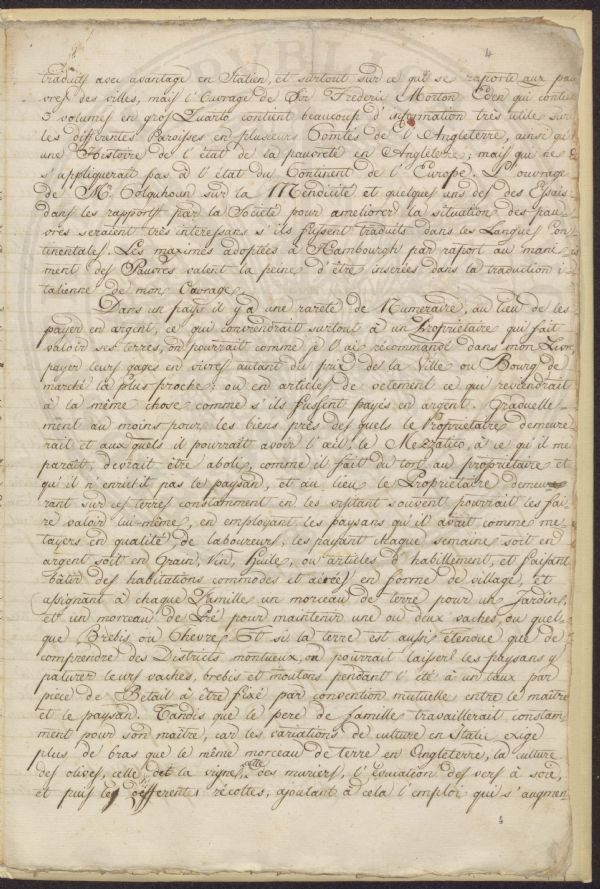 4
traduits avec avantage en Italien, et surtout sur ce qui se raporte aux pau
vres des villes, mais l'Ouvrage de Sir Frederic Morton Eden qui contient
3 volumes en gros Quarto contient beaucoup d'information très utile sur
les differentes Paroisses en plusieurs Comtés de l'Angleterre, ainsi qu'
une Histoire de l'état de la pauvreté en Angleterre; mais qui ne
s'appliquerait pas à l'état du Continent de l'Europe. L'ouvrage
de Mr. Colquhoun sur la Mendicité et quelques uns des Essais
dans les rapports par la Société pour ameliorer la situation des pau-
vres seraient très interessans s'ils fussent traduits dans les Langues Con
tinentales. Les maximes adoptées à Hambourgh par raport au manie
ment des Pauvres valent la peine d'être inserées dans la traduction i-
talienne de mon Ouvrage.
Dans un pays il y a une rareté de Numeraire, au lieu de les
payer en argent, ce qui conviendrait surtout à un Proprietaire qui fait
valoir ses terres, on pourrait comme je l'ai récommandé dans mon Livre
payer leurs gages en vivres autant du prix de la Ville ou Bourg de
marché la plus proche; ou en articles de vetement ce qui reviendrait
à la même chose comme s'ils fussent payés en argent. Graduelle-
ment au moins pour les biens près des quels le Proprietaire demeure
rait et aux quels il pourrait avoir l'œil, le Mezzatico, à ce qu'il me
paraît, devrait être aboli, comme il fait du tort au propriétaire et
qu'il n'enrichit pas le paysan, et au lieu le Proprietaire demeu
rant sur ces terres constamment en les visitant souvent pourrait les fai-
re valoir lui-même, en employant les paysans qu'il avait comme me-
tayers en qualité de laboureurs, les payant chaque semaine soit en
argent soit en Grain, Vin, Huile, ou articles d'habillement, et faisant
bâtir des habitations commodes et aérées en forme de village, et
assignant à chaque Famille un morceau de terre pour un Jardin,
et un morceau de Pré pour maintenir une ou deux vaches, ou quel-
que Brebis ou Chevres. Et si la terre est aussi étendue que de
comprendre des Districts montueux, on pourrait laisser les paysans y
paturer leurs vaches, brebis et moutons pendant l'été à un taux par
piece de Betail à être fixé par convention mutuelle entre le maître
et le paysan. Tandis que le pere de famille travaillerait constam-
ment pour son maître, car les variations de culture en Italie exige
plus de bras que le même morceau de terre en Angleterre, la culture
des olives, celle de la vigne, celle des muriers, l'éducation des vers à soie,
et puis les differentes récoltes, ajoutant à cela l'emploi qui s'augmen
4